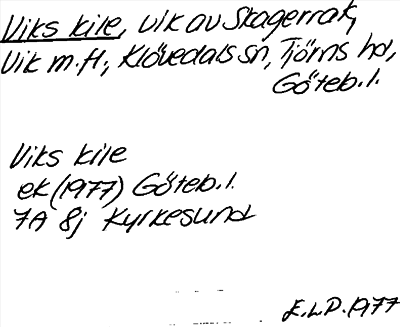 Viks kile, vik av Skagerrak,
Vik m.fl., Klövedals sn, Tjörns hd,
Göteb.l.
Viks kile
ek (1977) Göteb.l.
7A 8j Kyrkesund
E.L.P. 1977